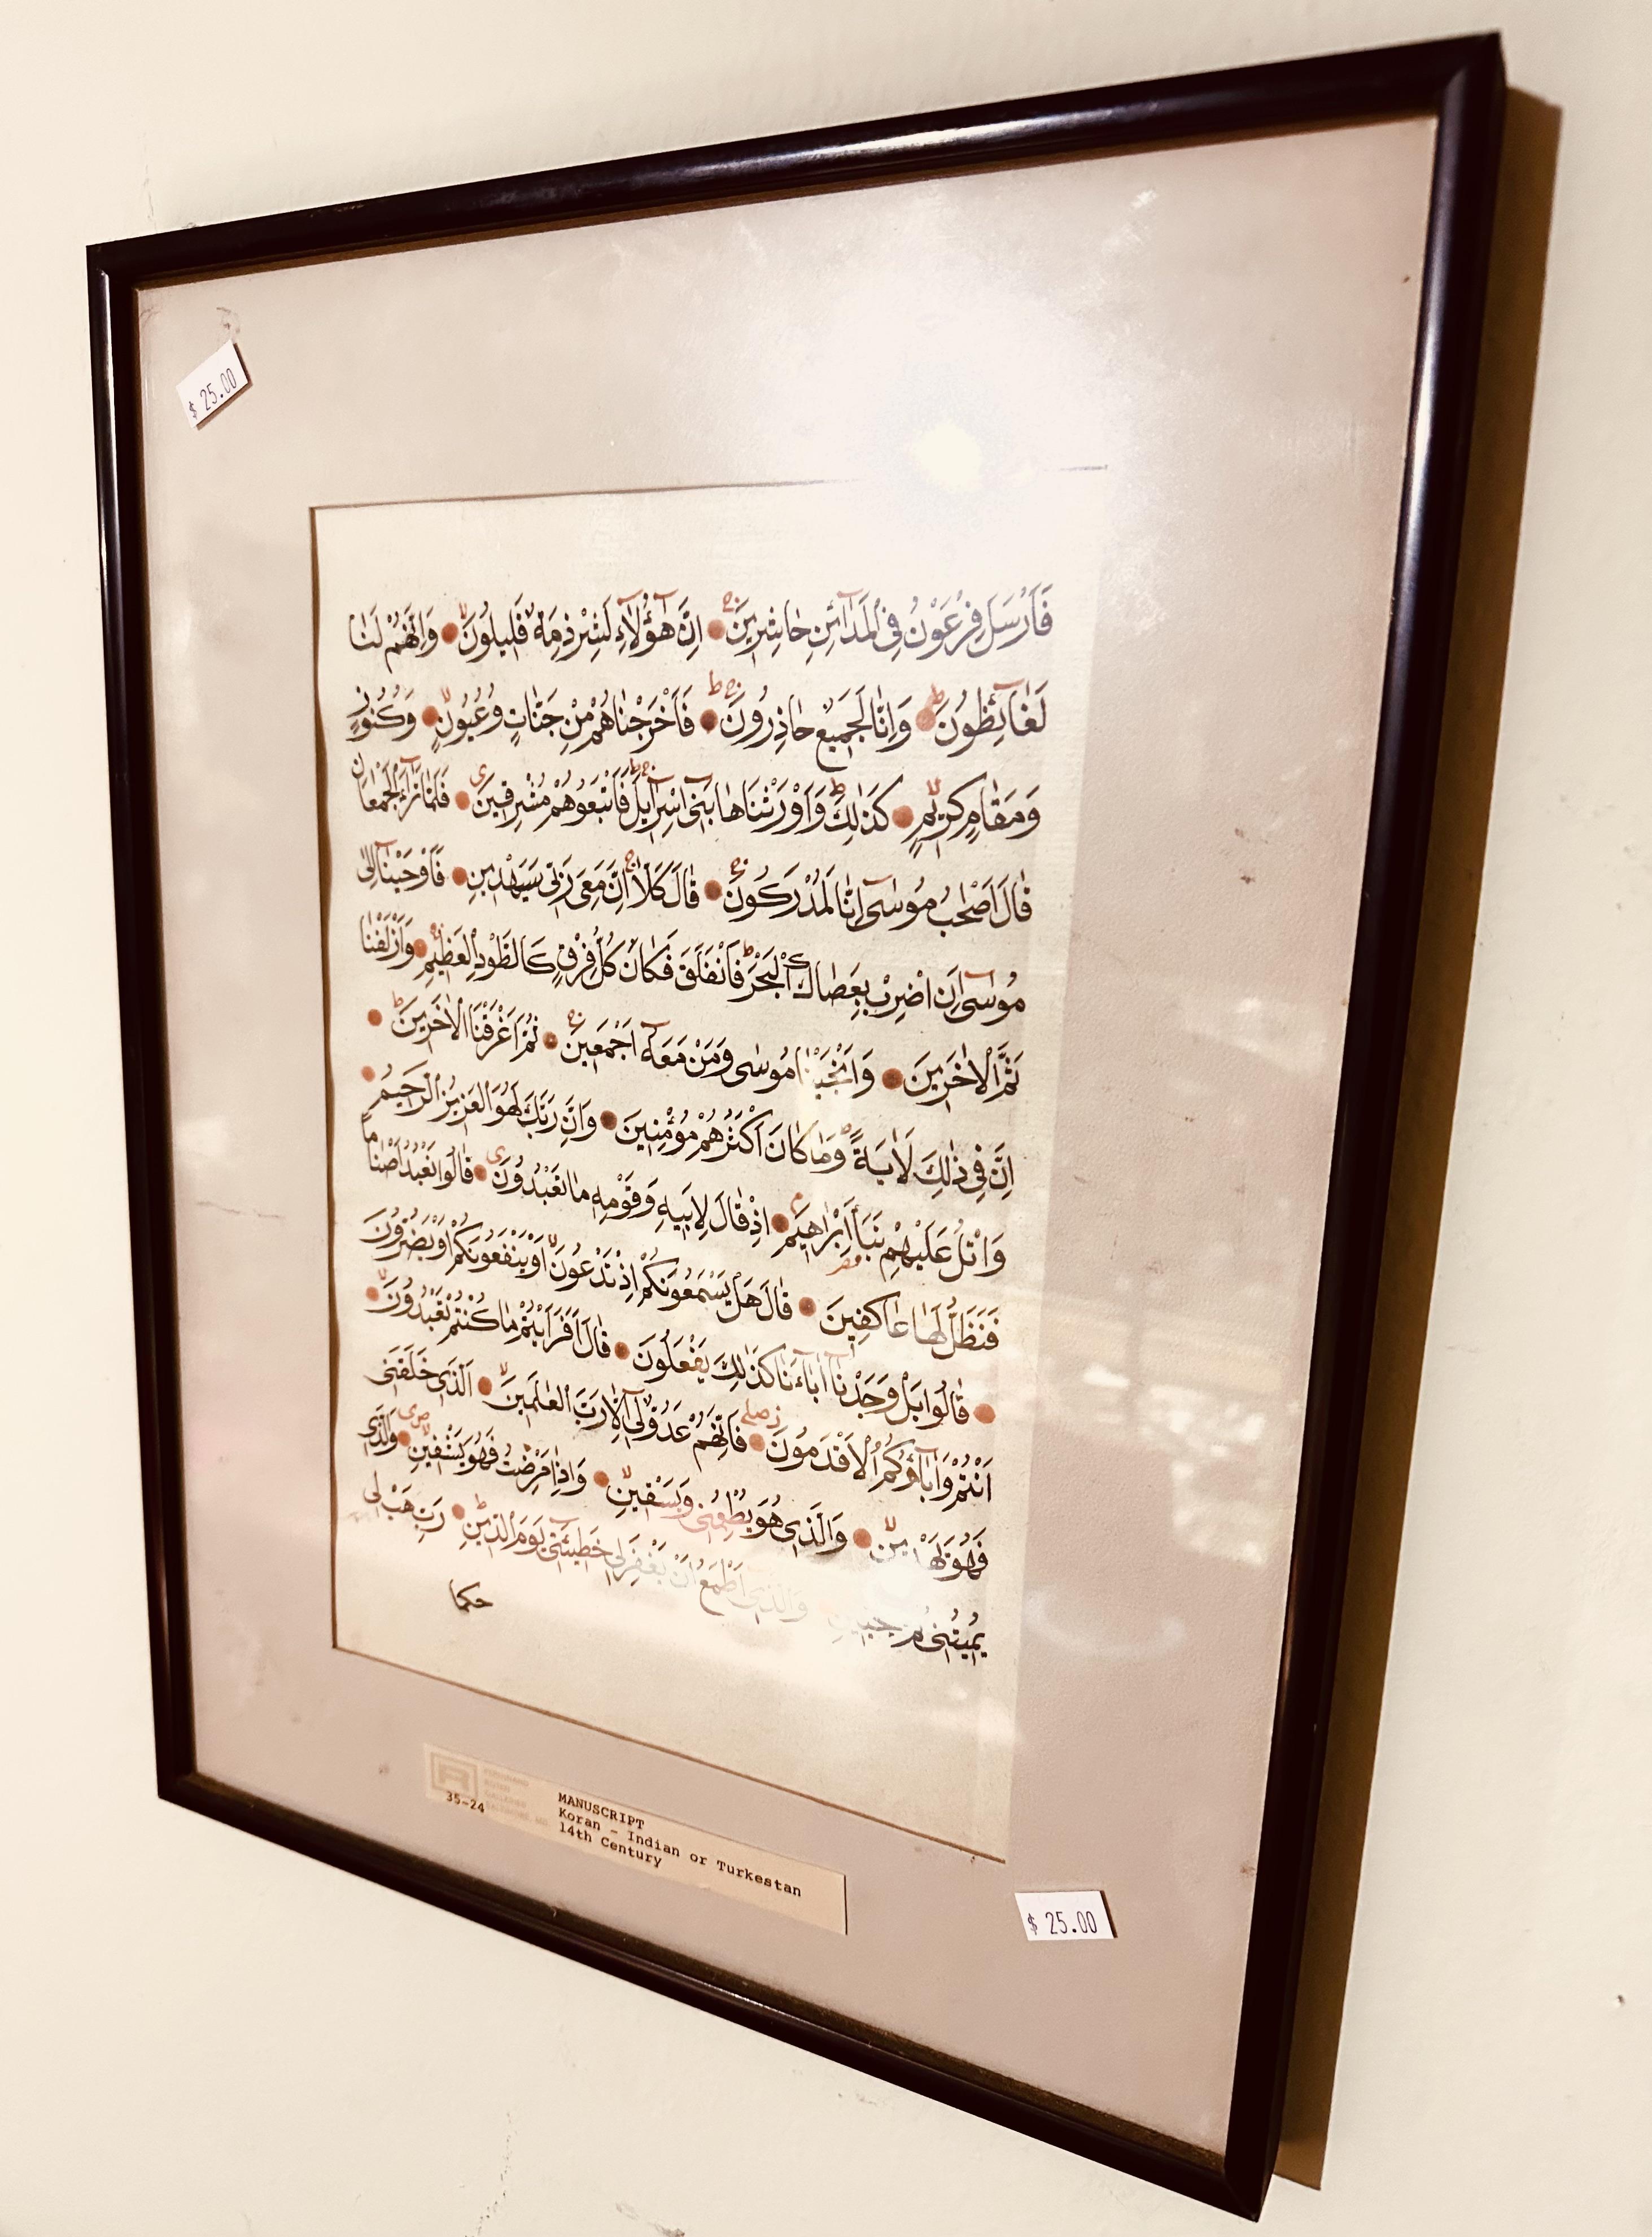 $ 25.00
فَاَرْسَلَ فِرْعَوْنُ فِى الْمَدَآئِنِ حَاشِرِينَ اِنَّ هٰٓؤُلَآءِ لَشِرْذِمَةٌ قَلِيلُونَ وَاِنَّهُمْ لَنَا
لَغَآئِظُونَ وَاِنَّا لَجَمِيعٌ حَاذِرُونَ فَاَخْرَجْنَاهُمْ مِنْ جَنَّاتٍ وَعُيُونٍ وَكُنُوزٍ
وَمَقَامٍ كَرِيمٍ كَذٰلِكَ وَاَوْرَثْنَاهَا بَنِىٓ اِسْرَآئِيلَ فَاَتْبَعُوهُمْ مُشْرِقِينَ فَلَمَّا تَرَآءَ الْجَمْعَانِ
قَالَ اَصْحٰبُ مُوسٰىٓ اِنَّا لَمُدْرَكُونَ قَالَ كَلَّا اِنَّ مَعِىَ رَبِّى سَيَهْدِينِ فَاَوْحَيْنَآ اِلٰى
مُوسٰىٓ اَنِ اضْرِبْ بِعَصَاكَ الْبَحْرَ فَانْفَلَقَ فَكَانَ كُلُّ فِرْقٍ كَالطَّوْدِ الْعَظِيمِ وَاَزْلَفْنَا
ثَمَّ الْاٰخَرِينَ وَاَنْجَيْنَا مُوسٰى وَمَنْ مَعَهٗٓ اَجْمَعِينَ ثُمَّ اَغْرَقْنَا الْاٰخَرِينَ
اِنَّ فِى ذٰلِكَ لَاٰيَةً وَمَا كَانَ اَكْثَرُهُمْ مُؤْمِنِينَ وَاِنَّ رَبَّكَ لَهُوَ الْعَزِيزُ الرَّحِيمُ
وَاتْلُ عَلَيْهِمْ نَبَاَ اِبْرَاهِيمَ اِذْ قَالَ لِاَبِيهِ وَقَوْمِهِ مَا تَعْبُدُونَ قَالُوا نَعْبُدُ اَصْنَامًا
فَنَظَلُّ لَهَا عَاكِفِينَ قَالَ هَلْ يَسْمَعُونَكُمْ اِذْ تَدْعُونَ اَوْ يَنْفَعُونَكُمْ اَوْ يَضُرُّونَ
قَالُوا بَلْ وَجَدْنَآ اٰبَآءَنَا كَذٰلِكَ يَفْعَلُونَ قَالَ اَفَرَاَيْتُمْ مَا كُنْتُمْ تَعْبُدُونَ
اَنْتُمْ وَاٰبَآؤُكُمُ الْاَقْدَمُونَ فَاِنَّهُمْ عَدُوٌّ لِىٓ اِلَّا رَبَّ الْعٰلَمِينَ اَلَّذِى خَلَقَنِى
فَهُوَ يَهْدِينِ وَالَّذِى هُوَ يُطْعِمُنِى وَيَسْقِينِ وَاِذَا مَرِضْتُ فَهُوَ يَشْفِينِ وَالَّذِى
يُمِيتُنِى ثُمَّ يُحْيِينِ وَالَّذِىٓ اَطْمَعُ اَنْ يَغْفِرَ لِى خَطِيئَتِى يَوْمَ الدِّينِ رَبِّ هَبْ لِى
حكما
35-24
MANUSCRIPT
Koran - Indian or Turkestan
14th Century
$ 25.00